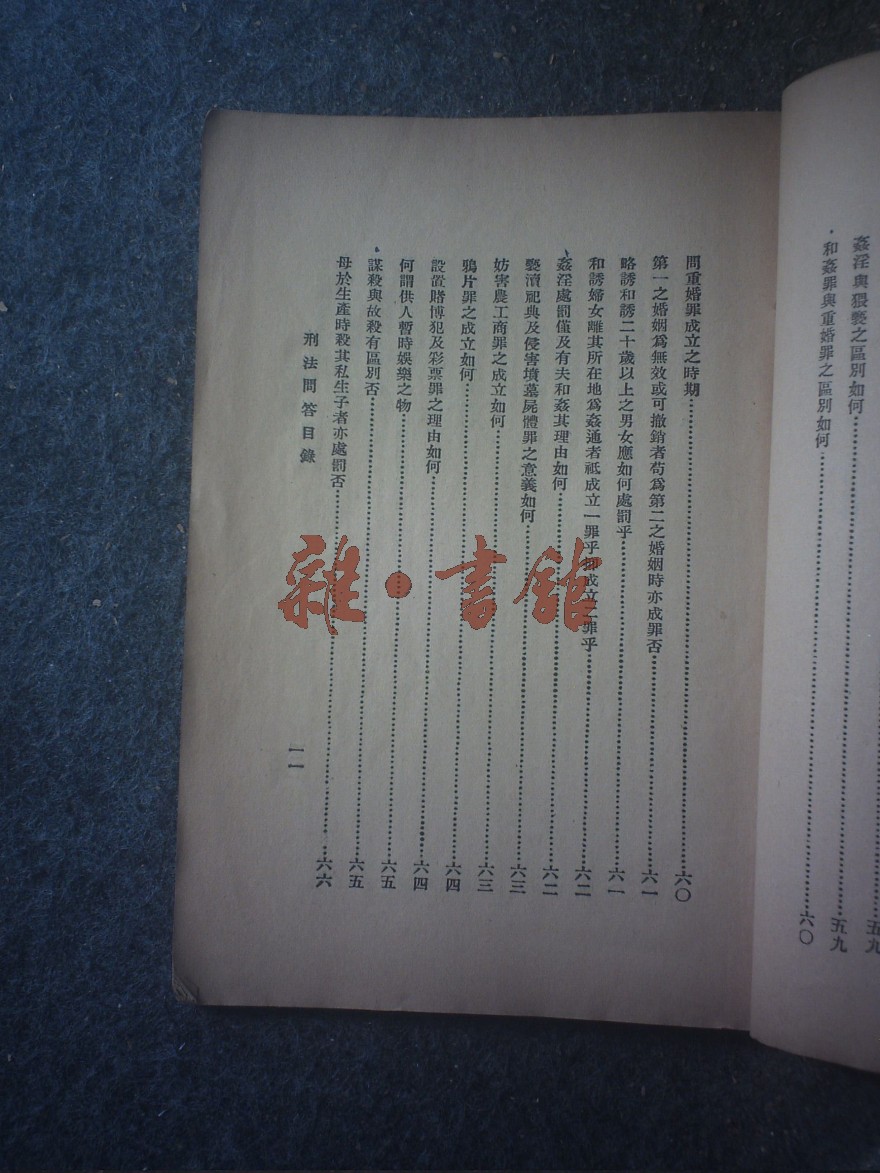 姦淫與猥褻之區別如何……五九
和姦罪與重婚罪之區別如何……六〇
問重婚罪成立之時期……六〇
第一之婚姻爲無效或可撤銷者苟爲第二之婚姻時亦成罪否……六一
略誘和誘二十歲以上之男女應如何處罰乎……六一
和誘婦女離其所在地爲姦通者祇成立一罪乎抑成立二罪乎……六二
姦淫處罰僅及有夫和姦其理由如何……六二
褻瀆祀典及侵害墳墓屍體罪之意義如何……六三
妨害農工商罪之成立如何……六三
鴉片罪之成立如何……六四
設置賭博犯及彩票罪之理由如何……六四
何謂供人暫時娛樂之物……六五
謀殺與故殺有區別否……六五
母於生產時殺其私生子者亦處罰否……六六
刑法問答目錄
一一
雜·書館